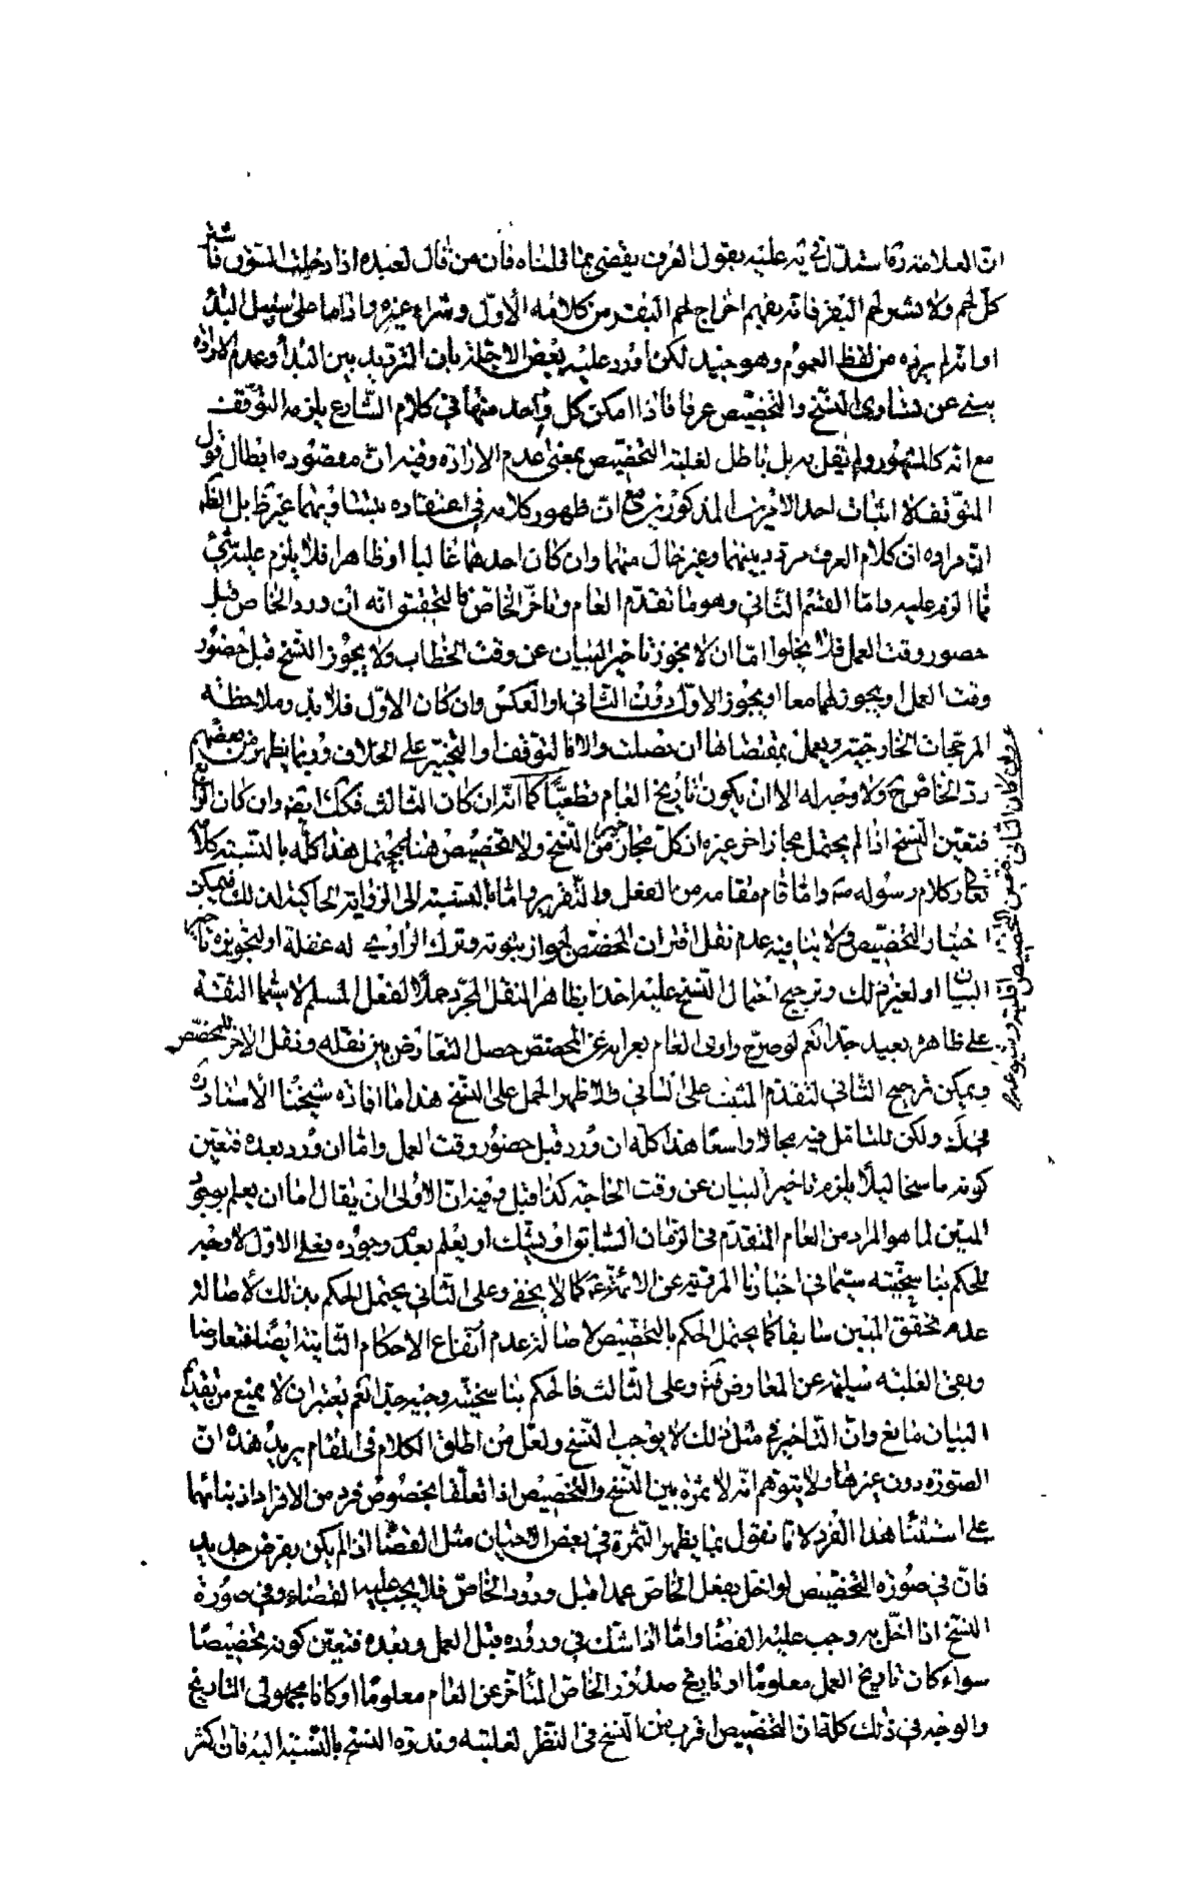 انّ العلامة ره استدلّ في يه عليه بقول العرف يقضى بما قلناه فان من قال لعبده اذا دخلت السوق فاشتر
كل لحم ولا تشتر لحم البقر فانه يفهم اخراج لحم البقر من كلامه الأوّل وشراء غيره واذا ما على سبيل البداء
او انه لم يرده من لفظ العموم وهو جيّد لكن أورد عليه بعض الاجلة بان الترديد بين البداء وعدم الارادة
يبنى عن تساوى النسخ والتخصيص عرفا فاذا امكن كل واحد منهما في كلام الشارع يلزمه التوقف
مع انه كالمشهور ولم يقل به بل باطل لغلبة التخصيص بمعنى عدم الارادة وفيه انّ مقصوده ابطال قول
المتوقف لا اثبات احد الأمرين المذكورين مع انّ ظهور كلامه في اعتقاده بتساويهما غير ظ بل الظ
انّ مراده انّ كلام العرف مردد بينهما وغير خال منهما وان كان احدهما غالبا او ظاهرا فلا يلزم عليه شئ
مما الزم عليه وامّا القسم الثّاني وهو ما تقدّم العام وتاخّر الخاصّ فالتحقيق انه ان ورد الخاص قبل
حضور وقت العمل فلا يخلوا امّا ان لا يجوز تاخير البيان عن وقت الخطاب ولا يجوز النسخ قبل حضور
وقت العمل او يجوز لهما معا او يجوز الاوّل دون الثّاني او العكس وان كان الاوّل فلا بد وملاحظة
المرجّحات الخارجيّة ويعمل بمقتضاها ان حصلت والا فالتوقف او التخيير على الخلاف وربما يظهر من بعضهم
ردّ الخاصّ ح ولا وجه له الا ان يكون تاريخ العام قطعيّا كما انّه ان كان الثالث فكك ايضا وان كان الرابع
فتعيّن النّسخ اذا لم يحتمل مجازا اخر غيره اذ كلّ مجاز خير من النّسخ ولا تخصيص هنا ليحتمل هذا كلّه بالنّسبة كلام
تعالى وكلام رسوله ص وامّا ما قام مقامه من الفعل والتقرير وامّا بالنسبة الى الرواية الحاكية لذلك فيمكن
اختيار التخصيص ولا ينافيه عدم نقل اقتران المخصّص لجواز ثبوته وترك الراوي له غفلة او لتجويزه تاخير
البيان او لغير ذلك وترجيح احتمال النّسخ عليه اخذا بظاهر النقل المجرّد حملا لفعل المسلم لا سيّما الثقة
على ظاهره بعيد جدّا نعم لو صرّح راوى العام بعرائه عن المخصّص حصل التعارض بين نقله ونقل الاخر للمخصّص
ويمكن ترجيح الثّاني لتقدّم المثبت على النّافي ولا ظهر الحمل على النّسخ هذا ما افاده شيخنا الأستاد ره
في ذلك ولكن للتامّل فيه مجالا واسعا هذا كلّه ان ورد قبل حضور وقت العمل وامّا ان ورد بعده فتعيّن
كونه ناسخا لئلّا يلزم تاخير البيان عن وقت الحاجة كذا قيل وفيه انّ الاولى ان يقال امّا ان يعلم بوجود
المبيّن لما هو المراد من العام المتقدّم في الزمان السّابق او يشكّ او يعلم بعدم وجوده فعلى الاوّل لا وجه
للحكم بناسخيّته سيّما في اخبارنا المرويّة عن الائمّة ع كما لا يخفى وعلى الثّاني يحتمل الحكم بذلك لأصالة
عدم تحقّق المبين سابقا كما يحتمل الحكم بالتخصيص لاصالة عدم ارتفاع الأحكام الثّابتة ايضا فتعارضا
وبقى الغلبة سليمة عن المعارض وعلى الثّالث فالحكم بناسخيّته وجيه جدّا نعم يعتبر ان لا يمنع من تقديم
البيان مانع وانّ التأخير في مثل ذلك لا يوجب النّسخ ولعلّ من اطلق الكلام في المقام يريد هذه انّ
الصّورة دون غيرها ولا يتوهّم انّه لا ثمرة بين النّسخ والتّخصيص اذا تعلّقا بخصوص فرد من الافراد اذ بنائهما
على استثناء هذا الفرد لانا نقول بما يظهر الثمرة في بعض الاحيان مثل القضاء اذا لم يكن بفرض جديد
فانّ في صورة التخصيص لو اخلّ بفعل الخاص عمدا قبل ورود الخاصّ فلا يجب عليه القضاء وفي صورة
النّسخ اذا اخلّ به وجب عليه القضاء وامّا اذا شكّ في وروده قبل العمل وبعده فتعيّن كونه تخصيصا
سواء كان تاريخ العمل معلوما او تاريخ صدور الخاصّ المتأخّر عن العام معلوما او كانا مجهولي التاريخ
والوجه في ذلك كلّه انّ التخصيص اقرب من النّسخ في النّظر لغلبته وندرة النّسخ بالنّسبة اليه فانّ اكثر
وان كان الثاني فتعيّن التخصيص لاغلبيّته وشيوعه